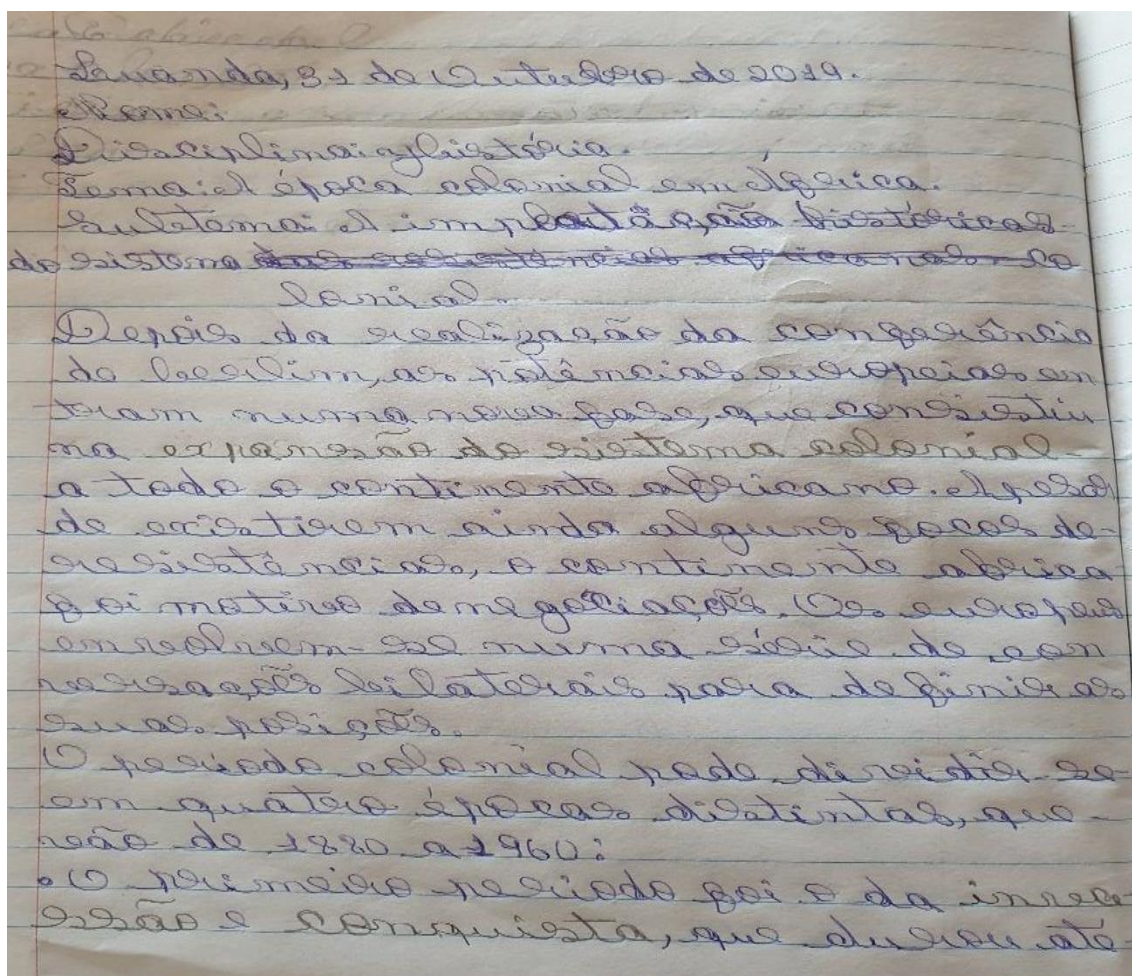 Luuanda, 31 de Outubro de 2019.
Nome:
Disciplina: História.
Tema: A época colonial em África.
Subtema: A implantação históricas
do sistema das resistências africanas co
lonial.
Depois da realização da conferência
de berlim, as potências europeias en
tram numa nova fase, que consistiu
na expansão do sistema colonial
a todo o continente africano. Apesar
de existirem ainda alguns focos de
resistências, o continente africa
foi motivo de negociações. Os europeus
envolvem-se numa série de con
versações bilaterais para definir as
suas posições.
O período colonial pode dividir-se
em quatro épocas distintas, que
vão de 1880 a 1960:
• O primeiro período foi o da inva
ssão e conquista, que durou até